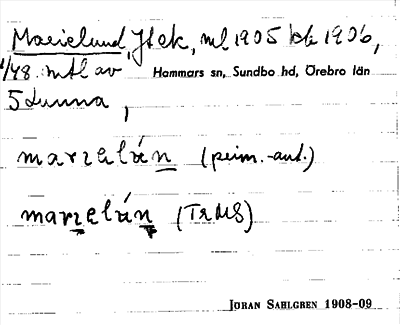 Marielund, Jtek, ml 1905 bk 1906,
1/48 mtl av Hammars sn, Sundbo hd, Örebro län
5 Lunna,
marzelún (prim.-ant.)
marzelún (TRMS)
JÖRAN SAHLGREN 1908-09